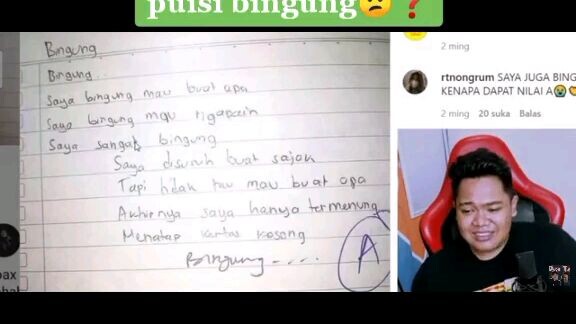 puisi bingung😕❓
Bingung
Bingung...
Saya bingung mau buat apa
Saya bingung mau ngapain
Saya sangat bingung
Saya disuruh buat sajak
Tapi tidak tau mau buat apa
Akhirnya saya hanya termenung
Menatap kertas kosong
Bingung....
A
2 ming
rtnongrum SAYA JUGA BING
KENAPA DAPAT NILAI A😭
2 ming 20 suka Balas